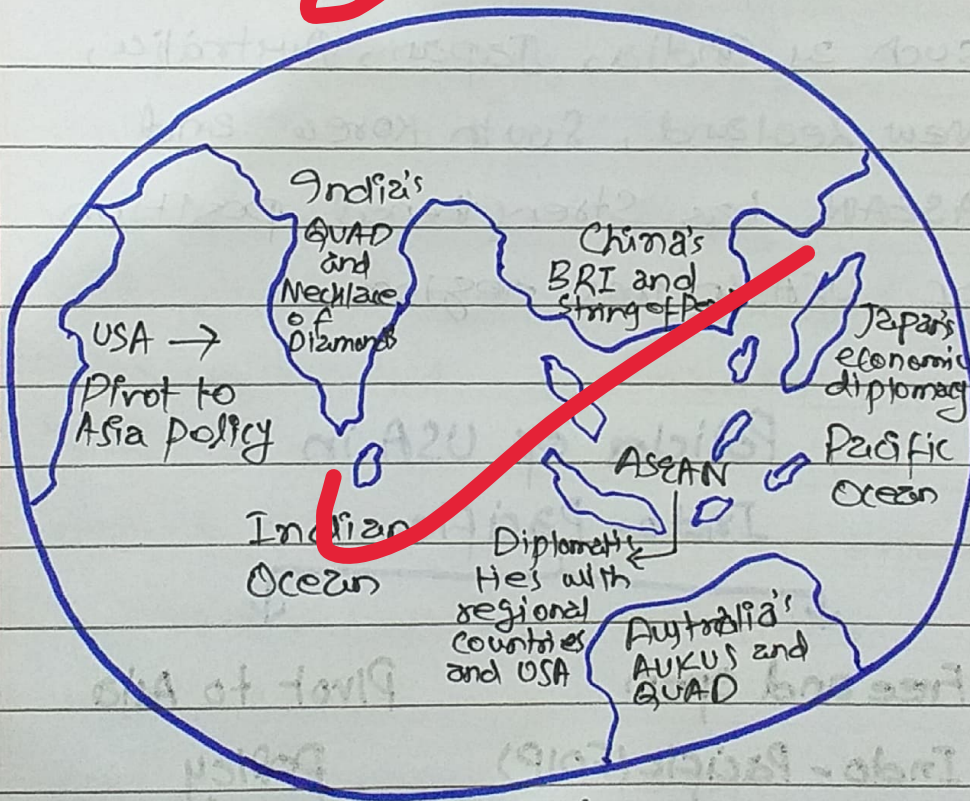 India's
QUAD
and
Necklace
of
Diamonds
China's
BRI and
String of
USA →
Pivot to
Asia Policy
Japan's
economic
diplomacy
Pacific
Ocean
ASEAN
Indian
Ocean
Diplomatic
ties with
regional
countries
and USA
Australia's
AUKUS and
QUAD